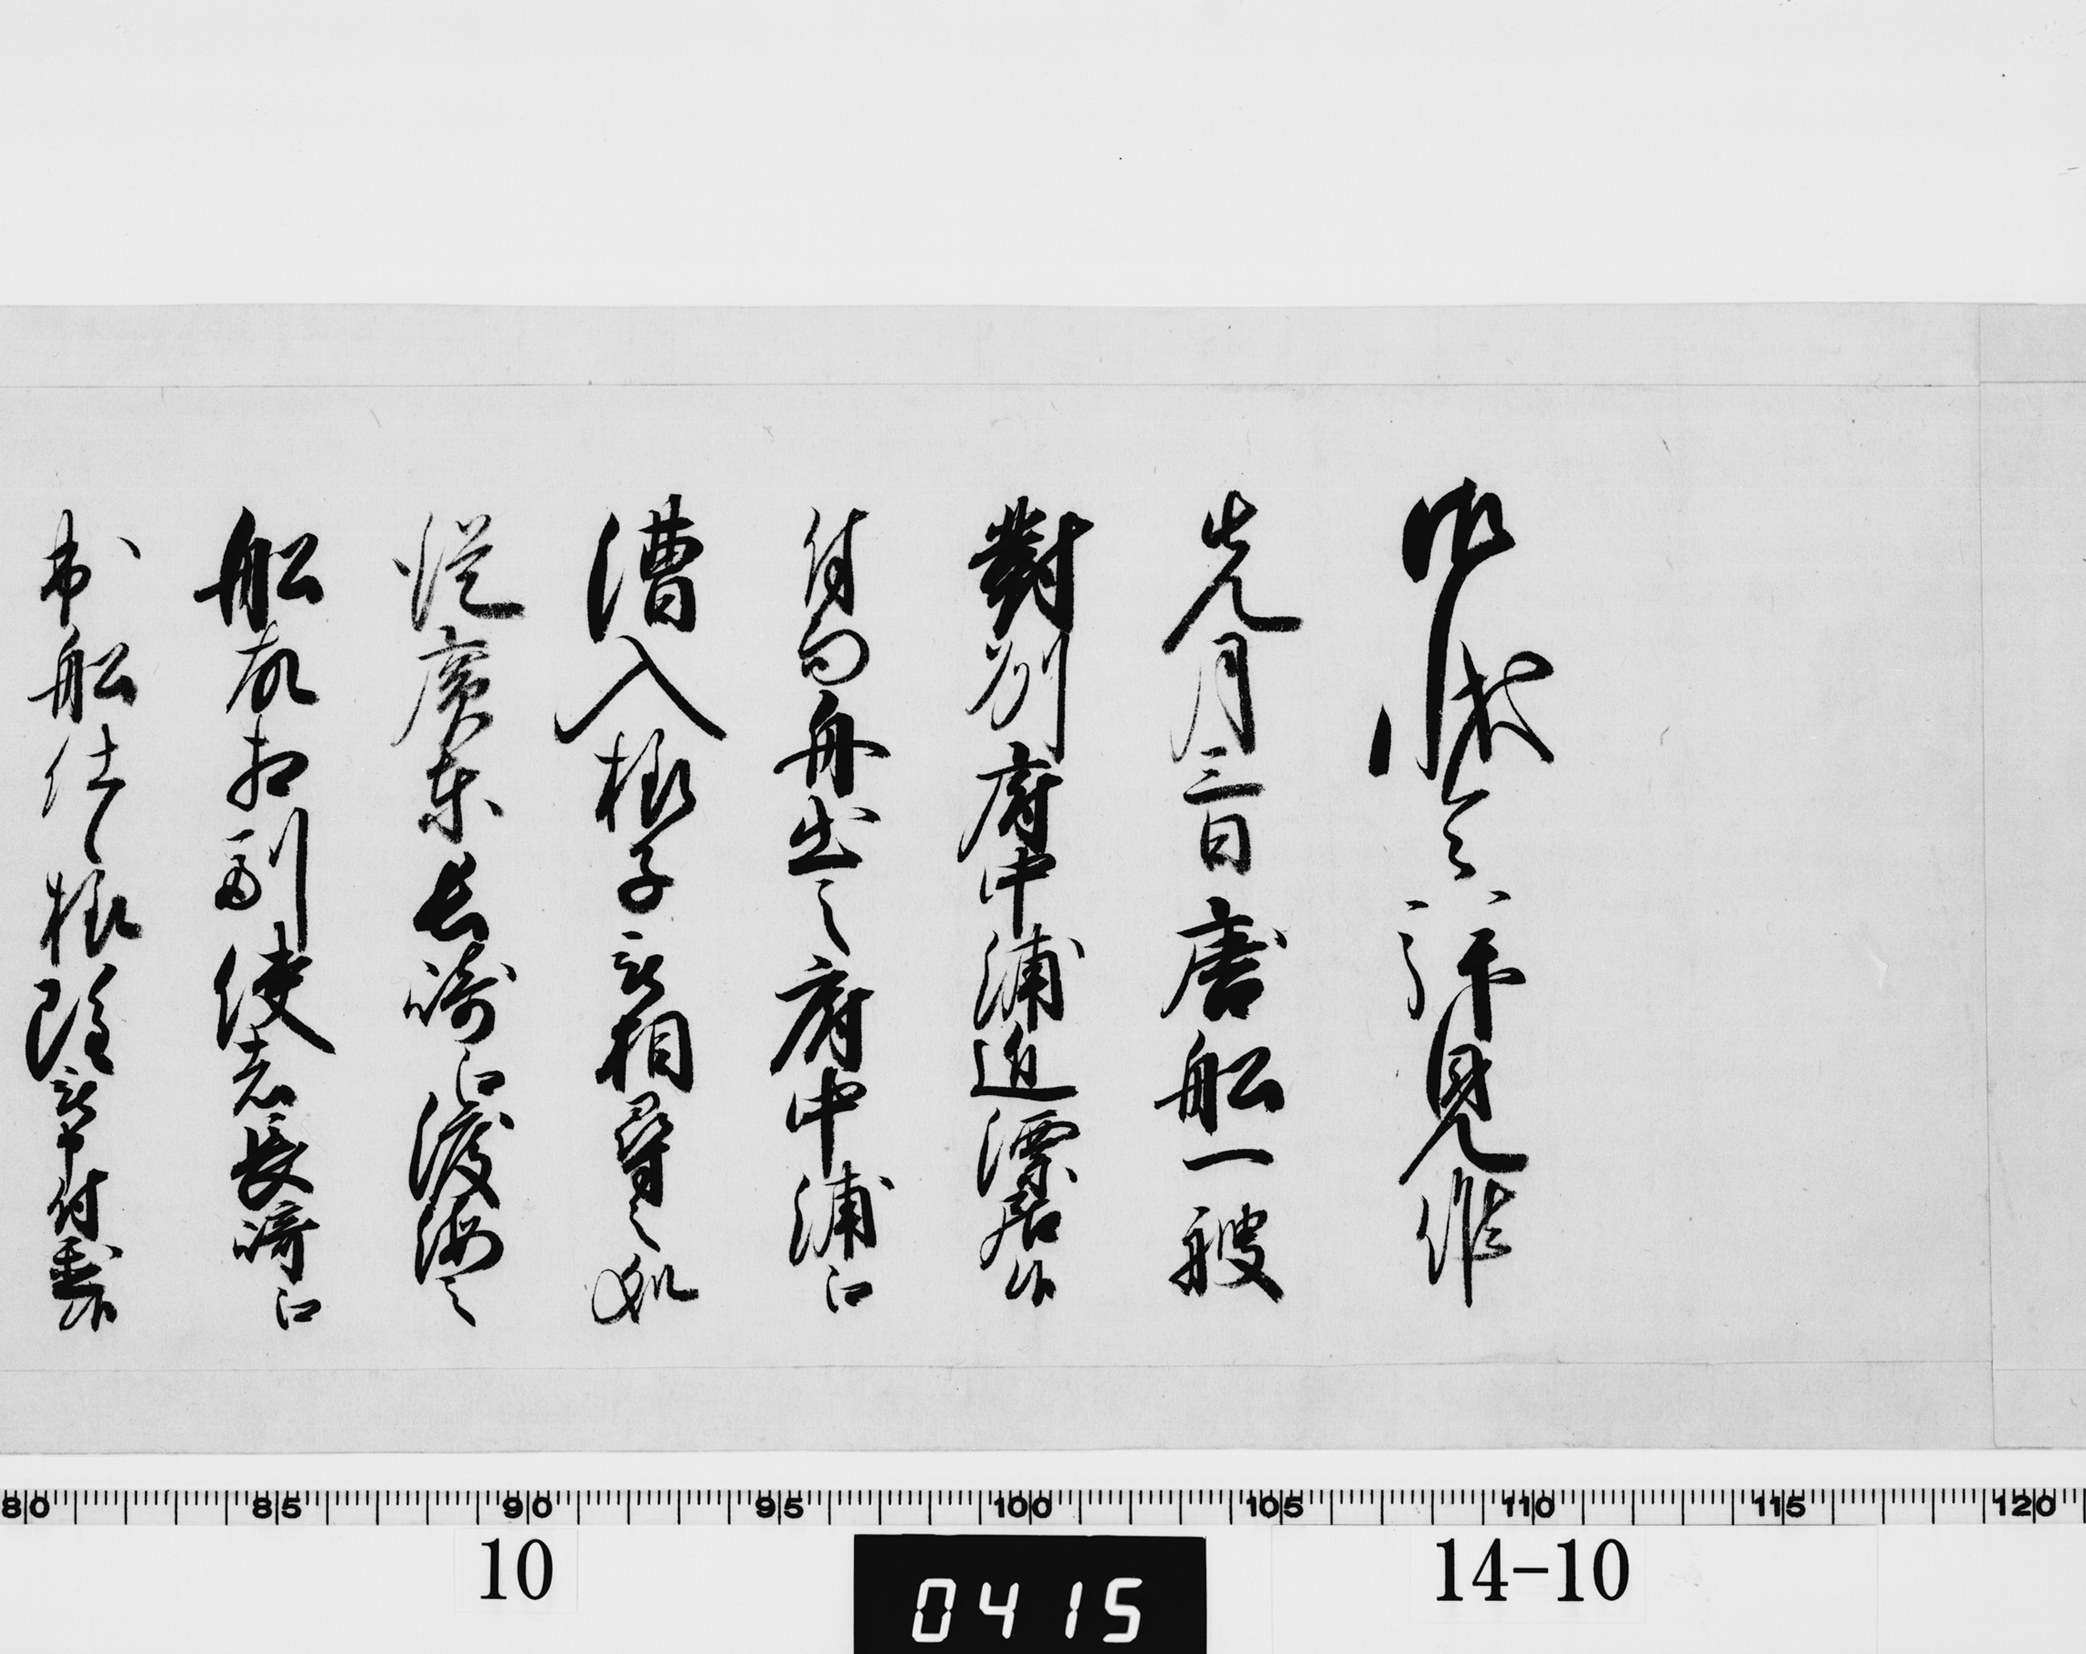 御状令拝見候
先月三日唐船一艘
對州府中浦近漂居候
付而舟出之府中浦江
漕入様子被相尋之処
従廣東長崎江渡海之
船故相副使者長崎江
船仕 様 被申付 候
80 85 90 95 100 105 110 115 120
10 0415 14-10